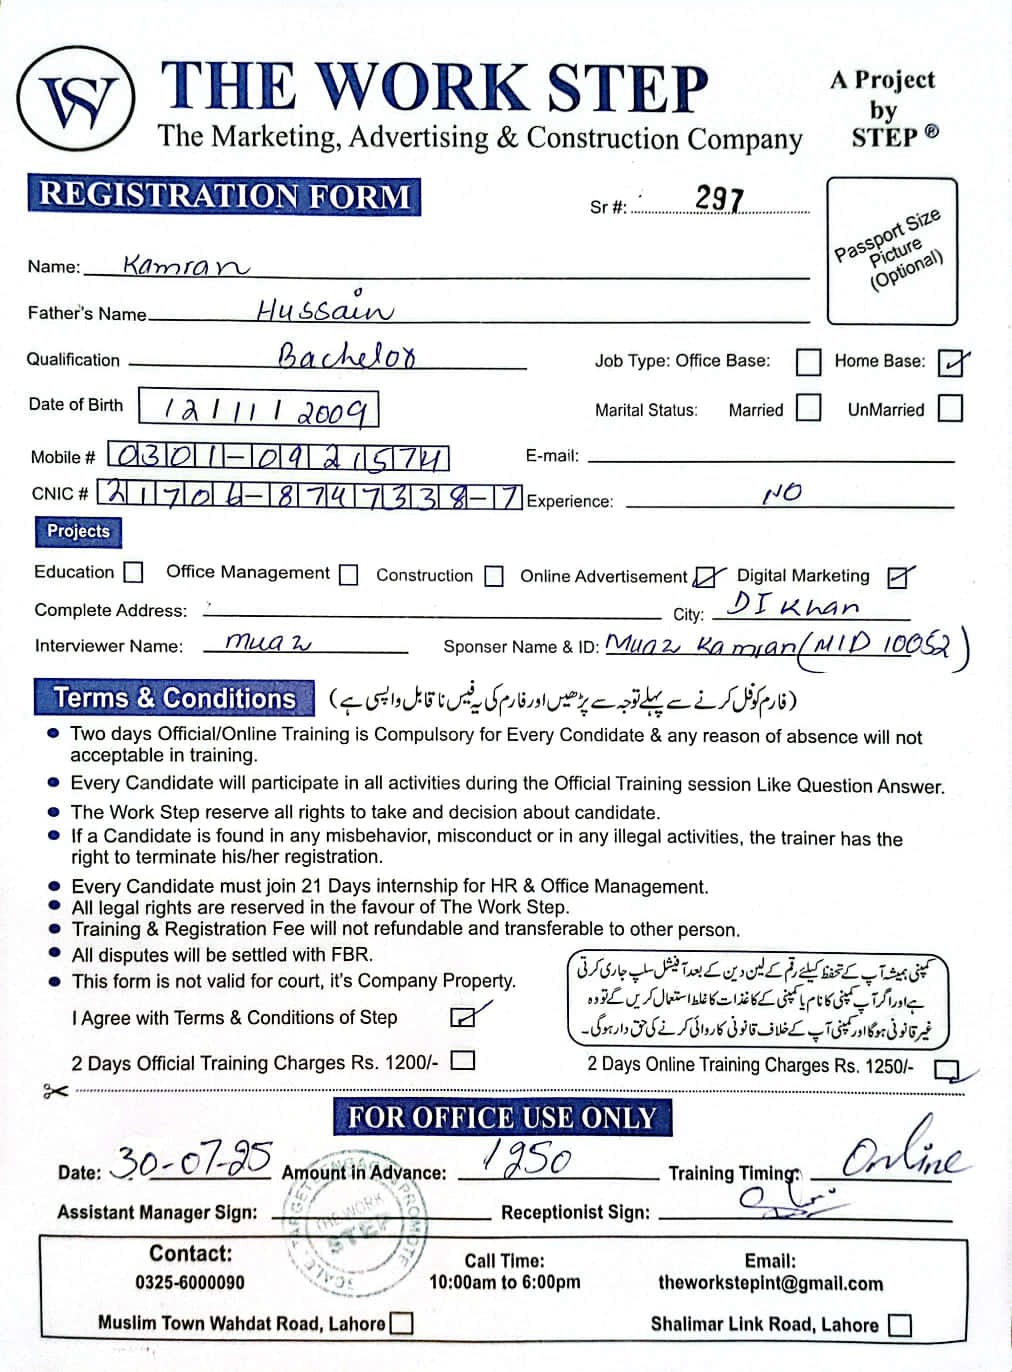 WS THE WORK STEP
The Marketing, Advertising & Construction Company
A Project
by
STEP ®
REGISTRATION FORM
Sr #: 297
Passport Size
Picture
(Optional)
Name: Kamran
Father's Name Hussain
Qualification Bachelor
Job Type: Office Base: Home Base:
Date of Birth 12/11/2009
Marital Status: Married UnMarried
Mobile # 0301-0921574
E-mail:
CNIC # 21706-8747338-7
Experience: NO
Projects
Education Office Management Construction Online Advertisement Digital Marketing
Complete Address: City: DI Khan
Interviewer Name: muaz Sponser Name & ID: Muaz Kamran (MID 10052)
Terms & Conditions (فارم کو فل کرنے سے پہلے توجہ سے پڑھیں اور فارم کی یہ فیس نا قابل واپسی ہے)
• Two days Official/Online Training is Compulsory for Every Condidate & any reason of absence will not
acceptable in training.
• Every Candidate will participate in all activities during the Official Training session Like Question Answer.
• The Work Step reserve all rights to take and decision about candidate.
• If a Candidate is found in any misbehavior, misconduct or in any illegal activities, the trainer has the
right to terminate his/her registration.
• Every Candidate must join 21 Days internship for HR & Office Management.
• All legal rights are reserved in the favour of The Work Step.
• Training & Registration Fee will not refundable and transferable to other person.
• All disputes will be settled with FBR.
• This form is not valid for court, it's Company Property.
کمپنی ہمیشہ آپ کے تحفظ کیلئے رقم کے لین دین کے بعد آفیشل سلپ جاری کرتی
ہے اور اگر آپ کمپنی کا نام یا کمپنی کے کاغذات کا غلط استعمال کریں گے تو وہ
غیر قانونی ہوگا اور کمپنی آپ کے خلاف قانونی کاروائی کرنے کی حق دار ہوگی۔
I Agree with Terms & Conditions of Step
2 Days Official Training Charges Rs. 1200/- 2 Days Online Training Charges Rs. 1250/-
FOR OFFICE USE ONLY
Date: 30-07-25 Amount in Advance: 1250 Training Timing: Online
Assistant Manager Sign: Receptionist Sign:
THE WORK STEP
PROMOTE
SCALE
Contact:
0325-6000090
Call Time:
10:00am to 6:00pm
Email:
theworkstepint@gmail.com
Muslim Town Wahdat Road, Lahore Shalimar Link Road, Lahore